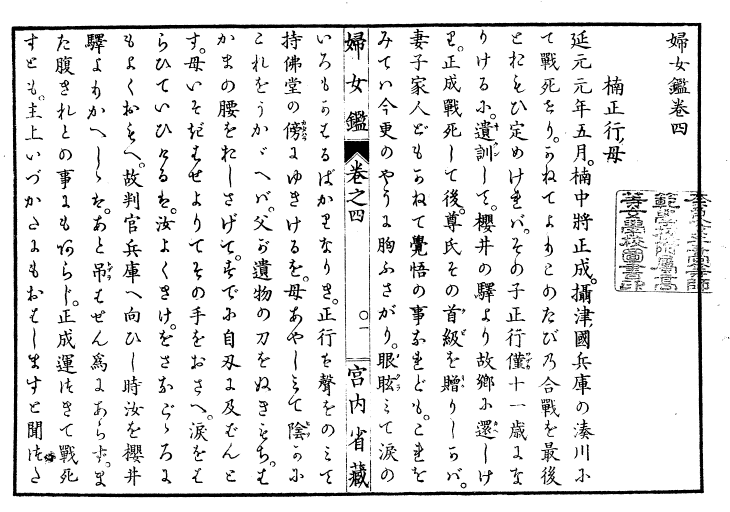 婦女鑑卷四
楠正行ノ母
延元元年五月。楠中將正成。攝津國兵庫の湊川に
て戰死せり。かねてよりこのたびの合戰を最後
とおもひ定めければ、その子正行僅十一歳にな
りけるに。遺訓して。櫻井の驛より故鄕に還しけ
り。正成戰死して後。尊氏その首級を贈りしかば。
妻子家人どもかねて覺悟の事なれども。これを
みてハ今更のやうに胸ふさがり。眼眩みて淚の
婦女鑑 卷之四 〇一 宮内省藏
いろもかはるばかりなりき。正行を聲をのみて
持佛堂の傍にゆきけるを。母あやしみて陰かに
これをうかゞへバ。父が遺物の刀をぬきもち。は
かまの腰をおしさげて。すでに自刃に及ばんと
す。母いそぎはせよりてその手をおさへ。淚をは
らひていひけるは。汝よくきけ。をさなごゝろに
もよくおもへ。故判官兵庫へ向ひし時汝を櫻井
驛よりかへしゝは。あと吊はせん爲にあらず。ま
た腹きれとの事にもあらじ。正成運つきて戰死
すとも。主上いづかたにもおはしますと聞つた